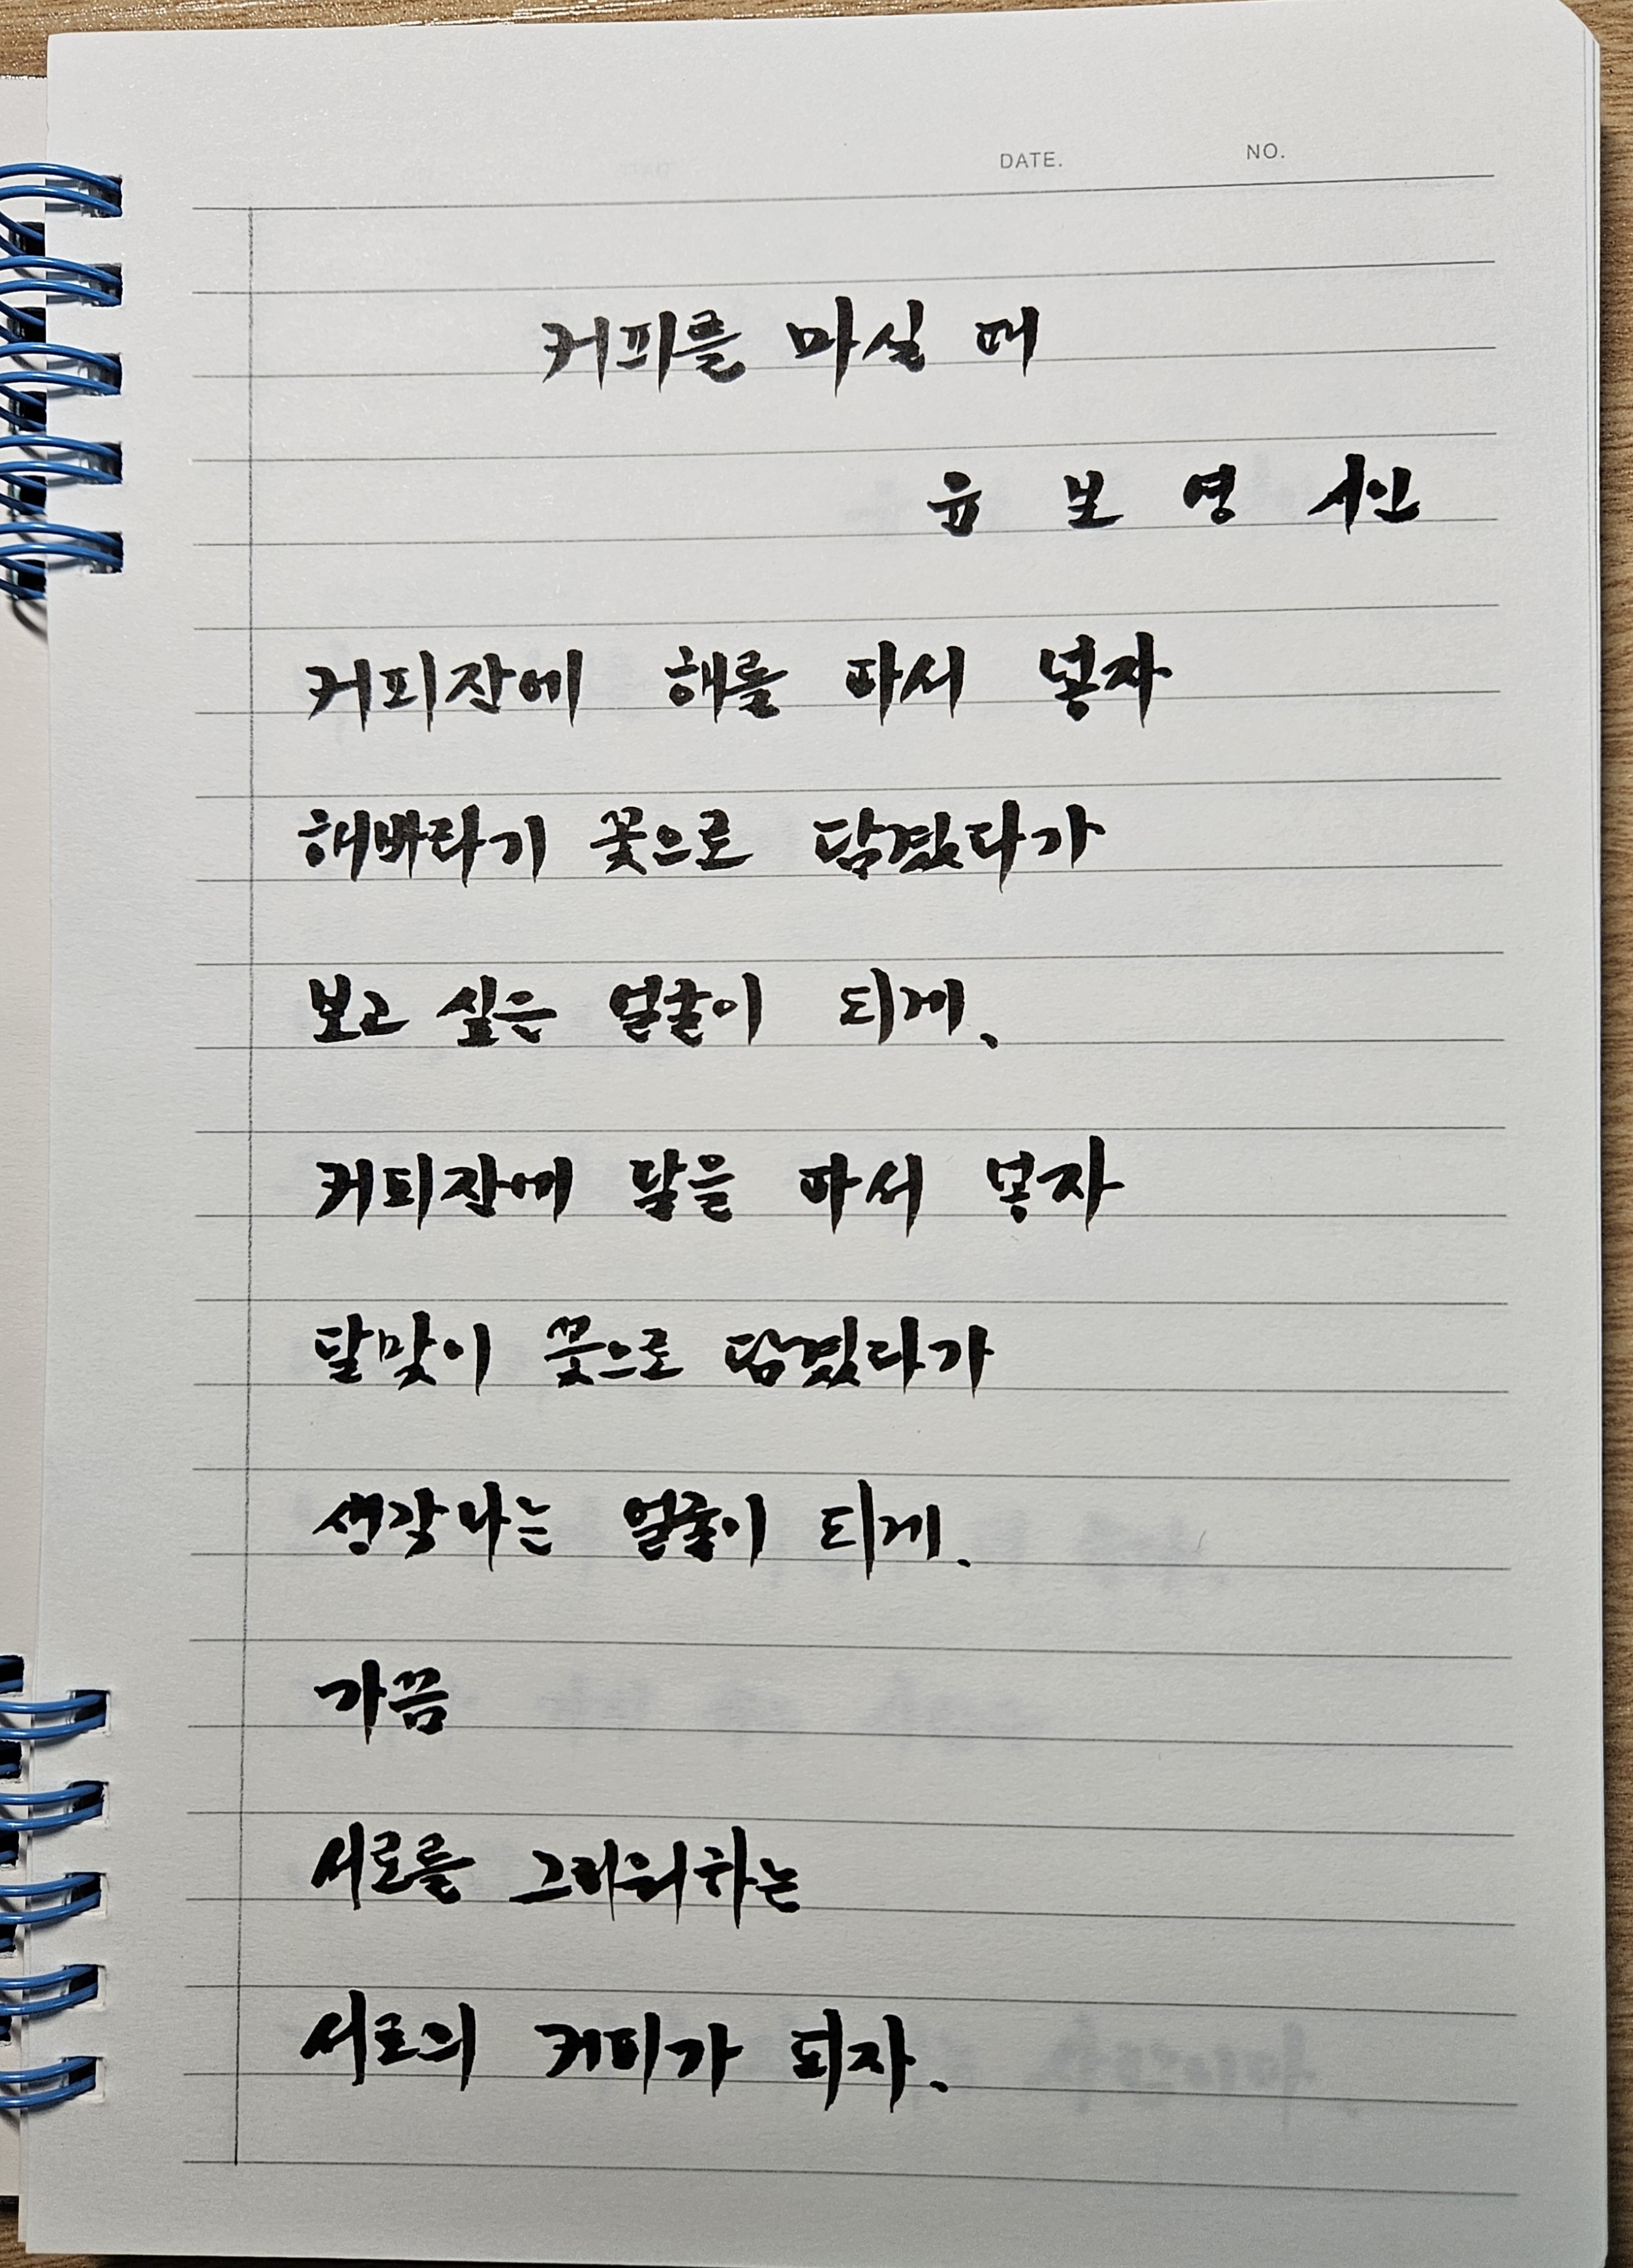 DATE. NO.
커피를 마실 때
윤 보 영 시인
커피잔에 해를 따서 넣자
해바라기 꽃으로 담겼다가
보고 싶은 얼굴이 되게.
커피잔에 달을 따서 넣자
달맞이 꽃으로 담겼다가
생각나는 얼굴이 되게.
가끔
서로를 그리워하는
서로의 커피가 되자.